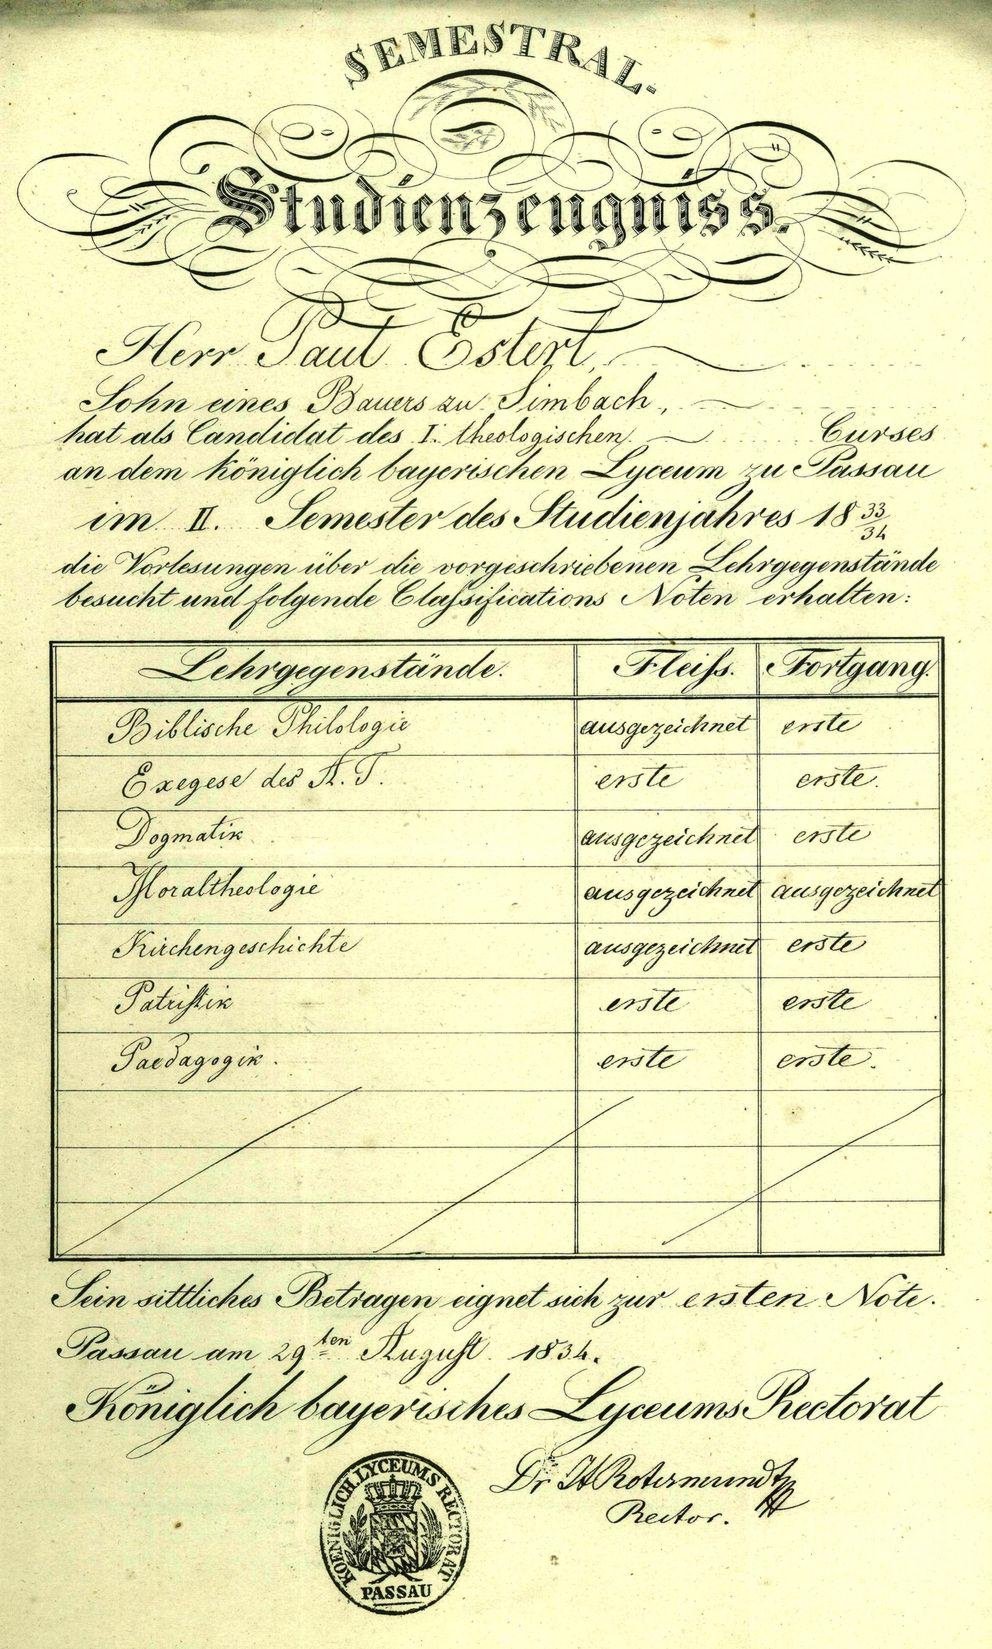 SEMESTRAL-
Studienzeugniss.
Herr Paul Esterl,
Sohn eines Bauers zu Simbach,
hat als Candidat des I. theologischen Curses
an dem königlich bayerischen Lyceum zu Passau
im II. Semester des Studienjahres 18 33/34
die Vorlesungen über die vorgeschriebenen Lehrgegenstände
besucht und folgende Classifications Noten erhalten:
Lehrgegenstände. Fleiss. Fortgang.
Biblische Philologie ausgezeichnet erste
Exegese des A. T. erste erste.
Dogmatik ausgezeichnet erste
Moraltheologie ausgezeichnet ausgezeichnet
Kirchengeschichte ausgezeichnet erste
Patristik erste erste
Paedagogik. erste erste.
Sein sittliches Betragen eignet sich zur ersten Note.
Passau am 29ten August 1834.
Königlich bayerisches Lyceums Rectorat
Dr Rotermundt
Rector.
KOENIGLICH. LYCEUMS RECTORAT
PASSAU